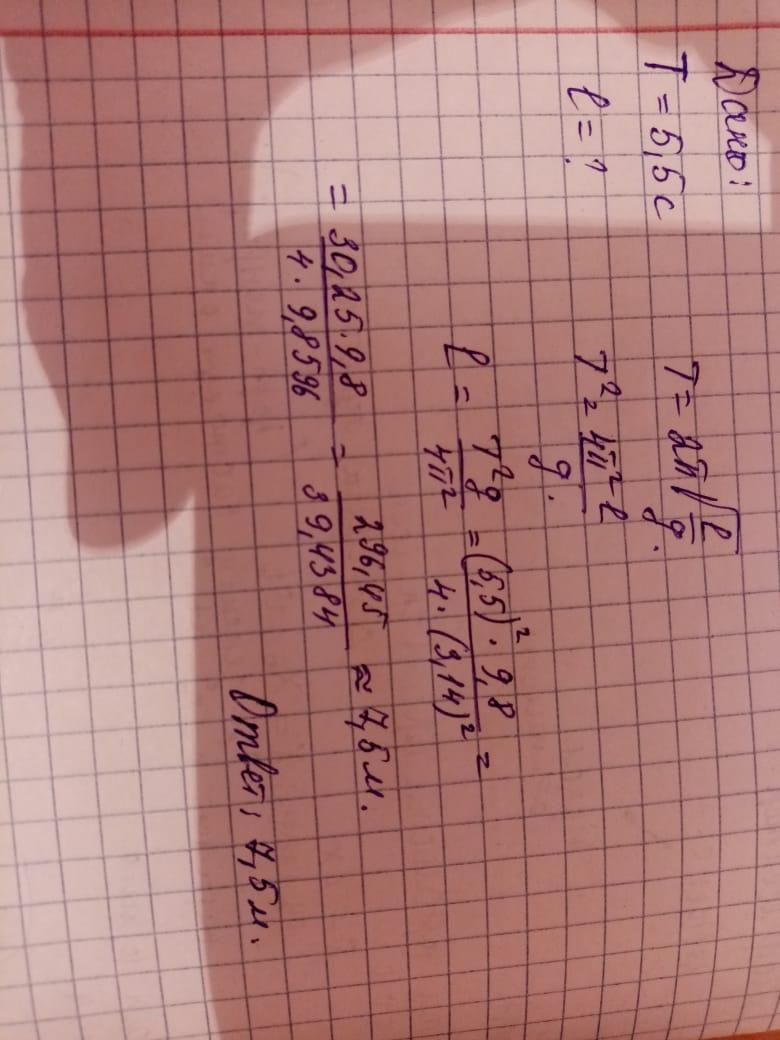 Дано:
T = 5,5 с
l = ?
T = 2π√(l/g).
T² = 4π²·l/g.
l = T²g/4π² = (5,5)²·9,8/4·(3,14)² =
= 30,25·9,8/4·9,8596 = 296,45/39,4384 ≈ 7,5 м.
Ответ: 7,5 м.